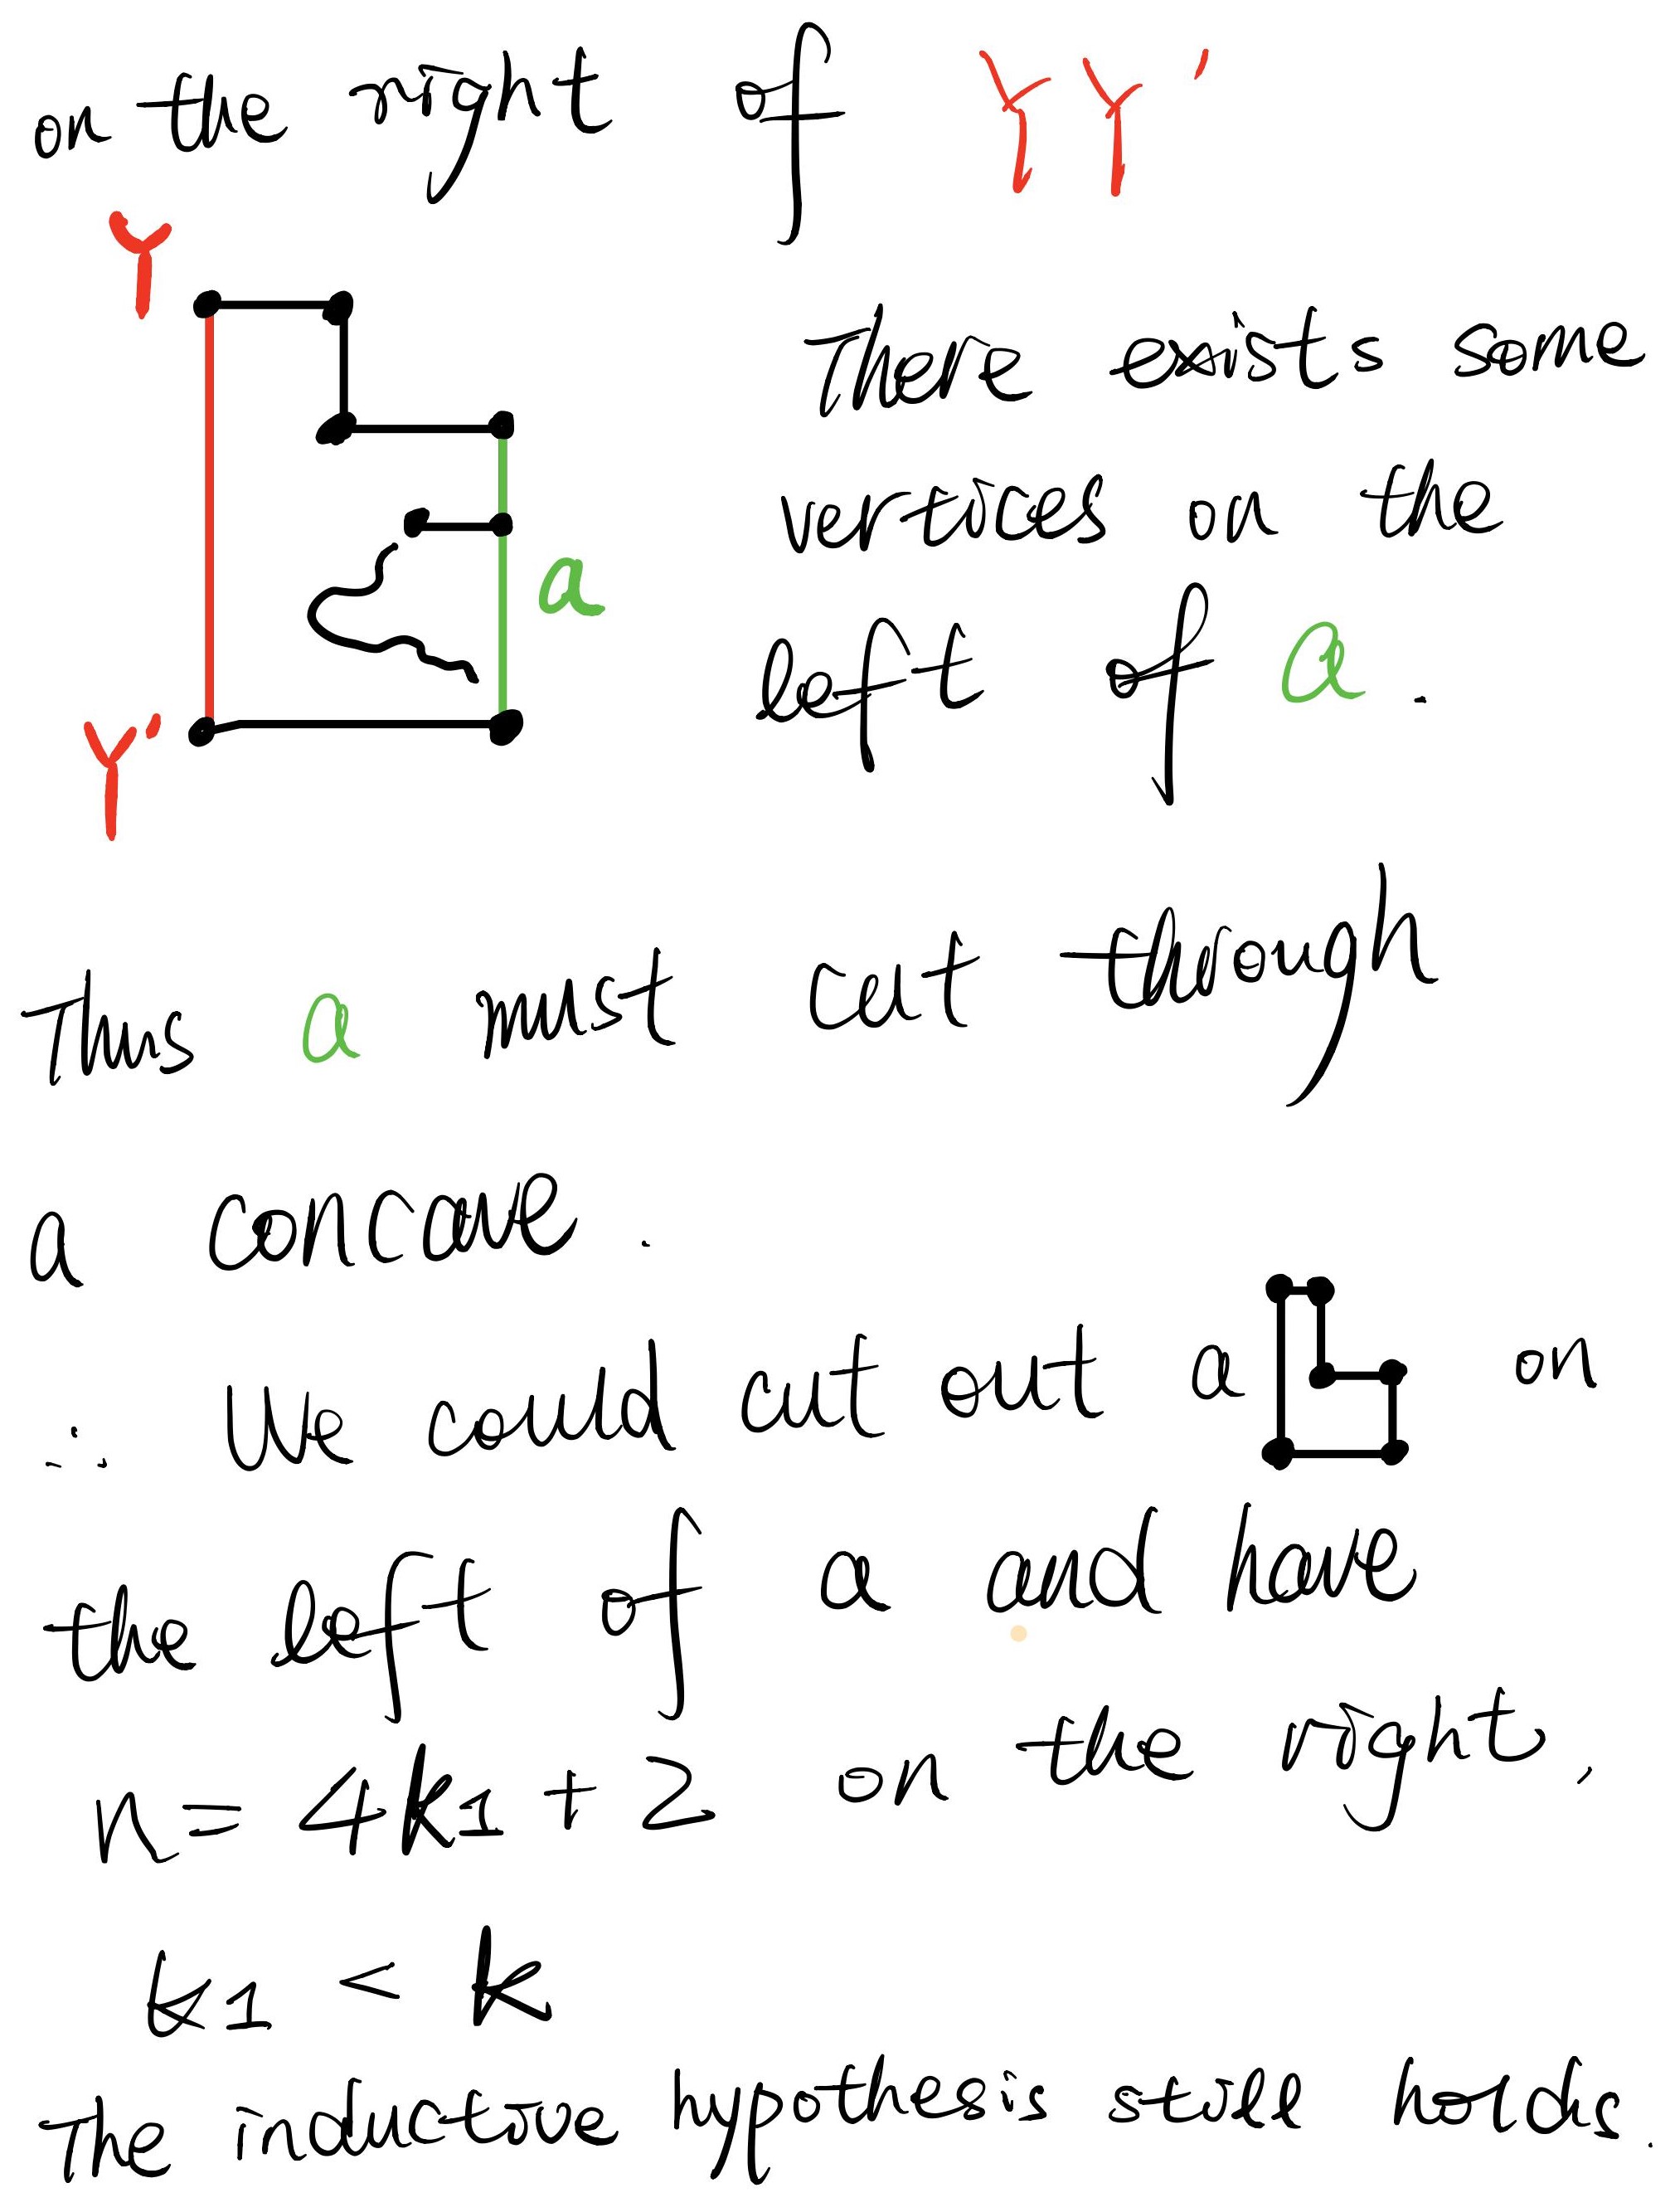 on the right of YY'
Y
There exists some
vertices on the
a
left of a.
Y'
Thus a must cut through
a concave.
∴ We could cut out a on
the left of a and have
n = 4k1 + 2 on the right,
k1 < k
The inductive hypothesis still holds.